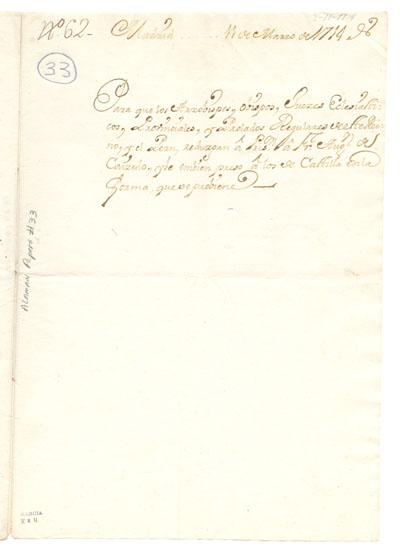 Nº 62- Madrid 11 de Marzo de 1714
33
Para que los Arzobispos, obispos, Jueces Eclesiasti-
cos, y Provinciales, y Prelados Regulares de este Rey-
no, y el Peru, a Fr. Augn. de
y le embien preso a los de Castilla en la
forma, que se previene
ALAMAN Papers #33
GARCIA